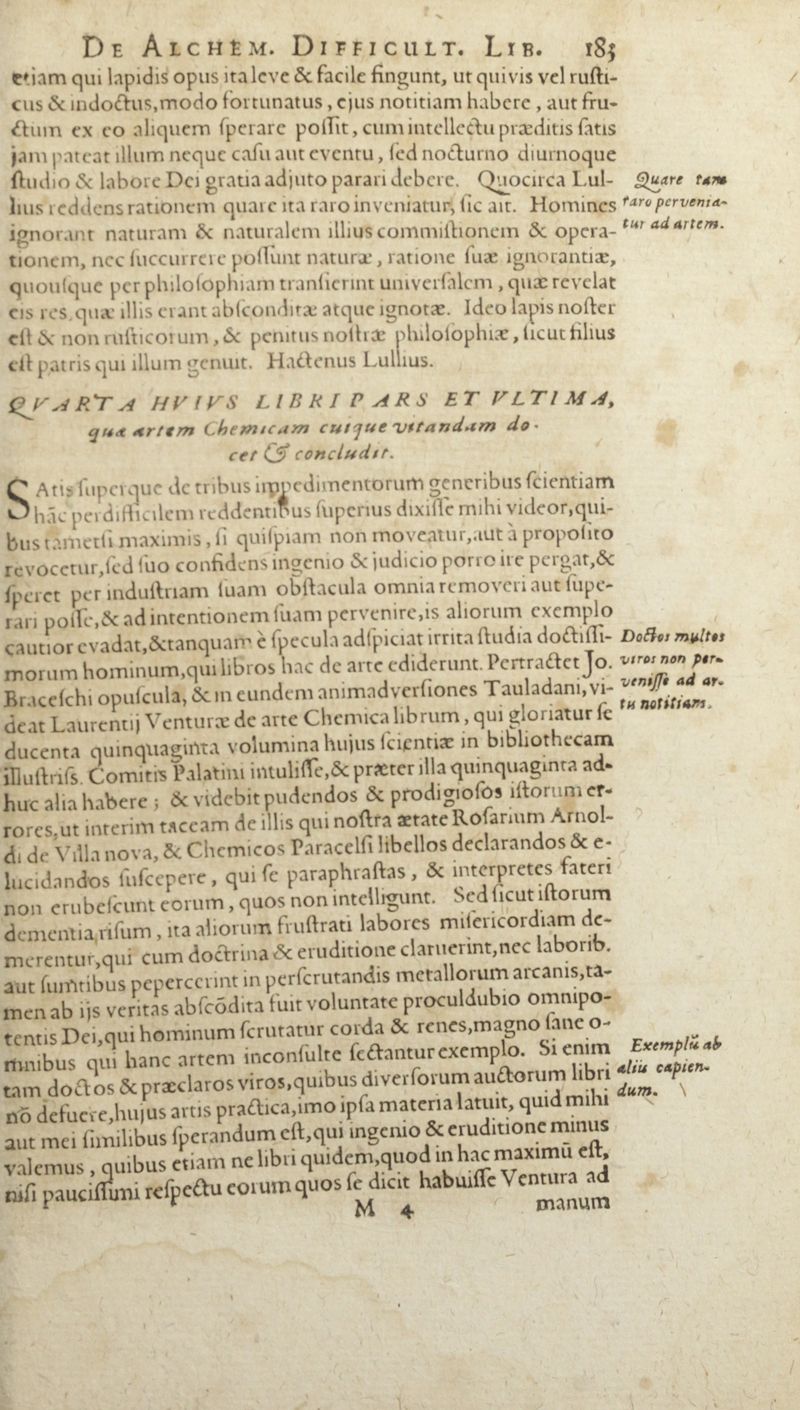 DE ALCHEM. DIFFICULT. LIB. 185
etiam qui lapidis opus ita leve & facile fingunt, ut quivis vel rusti-
cus & indoctus, modo fortunatus, ejus notitiam habere, aut fru-
ctum ex eo aliquem sperare possit, cum intellectu præditis satis
jam pateat illum neque casu aut eventu, sed nocturno diurnoque
studio & labore Dei gratia adjuto parari debere. Quocirca Lul-
lius reddens rationem quare ita raro inveniatur, sic ait. Homines
ignorant naturam & naturalem illius commistionem & opera-
tionem, nec succurrere possunt naturæ, ratione suæ ignorantiæ,
quousque per philosophiam transierint universalem, quæ revelat
eis res, quæ illis erant absconditæ atque ignotæ. Ideo lapis noster
est & non rusticorum, & penitus nostræ philosophiæ, sicut filius
est patris qui illum genuit. Hactenus Lullius.
Quare tam
raro pervenia-
tur ad artem.
QVARTA HVIVS LIBRI PARS ET VLTIMA,
qua artem Chemicam cuique vitandam do-
cet & concludit.
SAtis superque de tribus impedimentorum generibus scientiam
hãc perdifficilem reddentibus superius dixisse mihi videor, qui-
bus tametsi maximis, si quispiam non moveatur, aut à proposito
revocetur, sed suo confidens ingenio & judicio porro ire pergat, &
speret per industriam suam obstacula omnia removeri aut supe-
rari posse, & ad intentionem suam pervenire, is aliorum exemplo
cautior evadat, & tanquam è specula adspiciat irrita studia doctissi-
morum hominum, qui libros hac de arte ediderunt. Pertractet Jo.
Braceschi opuscula, & in eundem animadversiones Tauladani, vi-
deat Laurentij Venturæ de arte Chemica librum, qui gloriatur se
ducenta quinquaginta volumina hujus scientiæ in bibliothecam
illustriss. Comitis Palatini intulisse, & præter illa quinquaginta ad-
huc alia habere; & videbit pudendos & prodigiosos istorum er-
rores, ut interim taceam de illis qui nostra ætate Rosarium Arnol-
di de Villa nova, & Chemicos Paracelsi libellos declarandos & e-
lucidandos suscepere, qui se paraphrastas, & interpretes fateri
non erubescunt eorum, quos non intelligunt. Sed sicut istorum
dementia risum, ita aliorum frustrati labores misericordiam de-
merentur, qui cum doctrina & eruditione claruerint, nec laborib.
aut sumtibus pepercerint in perscrutandis metallorum arcanis, ta-
men ab ijs veritas abscõdita fuit voluntate proculdubio omnipo-
tentis Dei, qui hominum scrutatur corda & renes, magno sane o-
mnibus qui hanc artem inconsulte sectantur exemplo. Si enim
tam doctos & præclaros viros, quibus diversorum auctorum libri
nõ defuere, hujus artis practica, imo ipsa materia latuit, quid mihi
aut mei similibus sperandum est, qui ingenio & eruditione minus
valemus, quibus etiam ne libri quidem, quod in hac maximũ est,
nisi paucissimi respectu eorum quos se dicit habuisse Ventura ad
Doctos multos
viros non per-
venisse ad ar-
tis notitiam.
Exemplũ ab
aliis capien-
dum.
M 4 manum